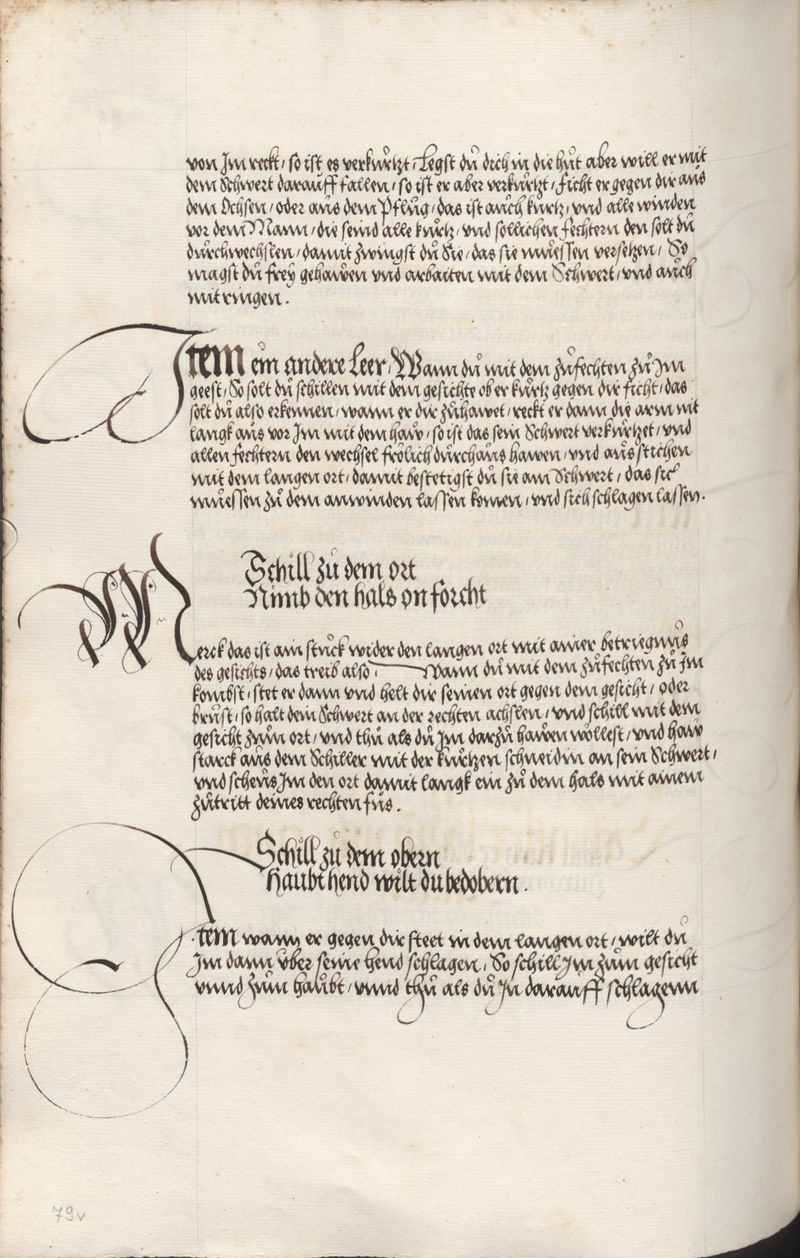 von Im reckt / so ist es verkürtzt / Legst dů dich in die hůt aber will er mit
dem Schwert darauff fallen / so ist er aber verkürtzt / ficht er gegen dir aus
dem Ochsen / oder aus dem Pflůg / das ist auch kurtz / vnd alle winden
vor dem Mann / die seind alle kurtz / vnd sollichen fechtern den solt dů
durchwechslen / damit zwingst dů Sie / das sie muessen versetzen / So
magst dů frey gehawen vnd arbaiten mit dem Schwert / vnd auch
mit ringen .
Item ein andere Leer / Wann dů mit dem zůfechten zů Im
geest / So solt dů schillen mit dem gesichte ob er kurtz gegen dir ficht / das
solt dů also erkennen / wann er dir zůhawet / reckt er dann die arm nit
langk aus vor Im mit dem haw / so ist das sein Schwert verkurtzet / vnd
allen fechtern den wechsel frölich durchaus hawen / vnd ausstichen
mit dem langen ort / damit bestetigst dů sie am Schwert / das sie
muessen zů dem anwinden lassen komen / vnd sich schlagen lassen .
Schill zů dem ort
Nimb den hals on forcht
Merck das ist ain stuck wider den langen ort mit ainer betriegnus
des gesichts / das treib also Wann dů mit dem zůfechten zů Im
kombst / stet er dann vnd helt dir seinen ort gegen dem gesicht / oder
brust / so halt dein Schwert an der rechten achslen / vnd schill mit dem
gesicht zům ort / vnd thů als dů Im darzů hawen wöllest / vnd haw
starck aus dem Schiller mit der kurtzen schneidin an sein Schwert /
vnd scheus Im den ort damit langk ein zů dem hals mit ainem
zůtritt deines rechten fůs .
Schill zů dem obern
Haubt hend wilt du bedobern .
Item wann er gegen dir steet in dem langen ort / wilt dů
Im dann vber seine hend schlagen / So schill Im zům gesicht
vnnd zům haubt / vnnd thů als dů In darauff schlagenn
79v